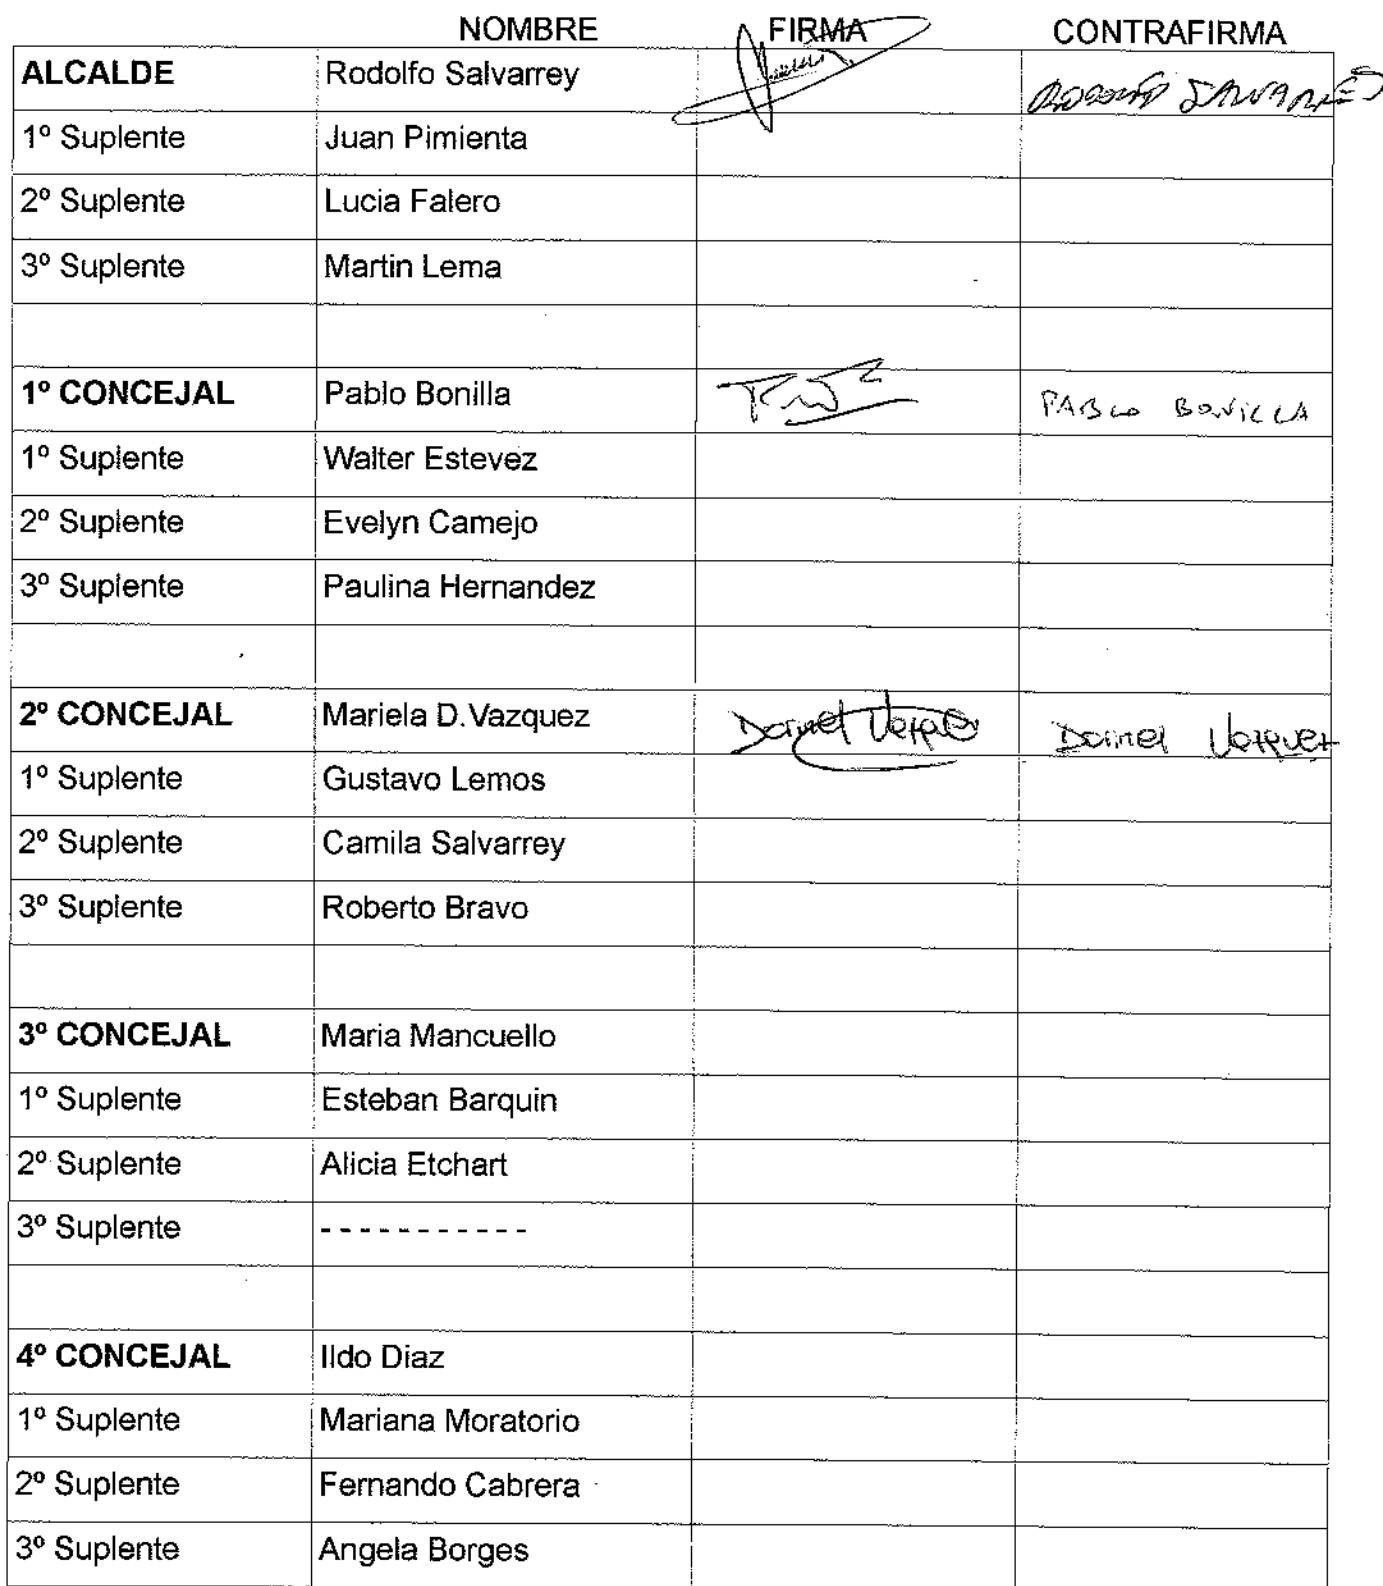 NOMBRE FIRMA CONTRAFIRMA
ALCALDE Rodolfo Salvarrey RODOLFO SALVARREY
1º Suplente Juan Pimienta
2º Suplente Lucia Falero
3º Suplente Martin Lema
1º CONCEJAL Pablo Bonilla PABLO BONILLA
1º Suplente Walter Estevez
2º Suplente Evelyn Camejo
3º Suplente Paulina Hernandez
2º CONCEJAL Mariela D.Vazquez Dornel Vazquez
1º Suplente Gustavo Lemos
2º Suplente Camila Salvarrey
3º Suplente Roberto Bravo
3º CONCEJAL Maria Mancuello
1º Suplente Esteban Barquin
2º Suplente Alicia Etchart
3º Suplente - - - - - - - - - - -
4º CONCEJAL Ildo Diaz
1º Suplente Mariana Moratorio
2º Suplente Fernando Cabrera
3º Suplente Angela Borges